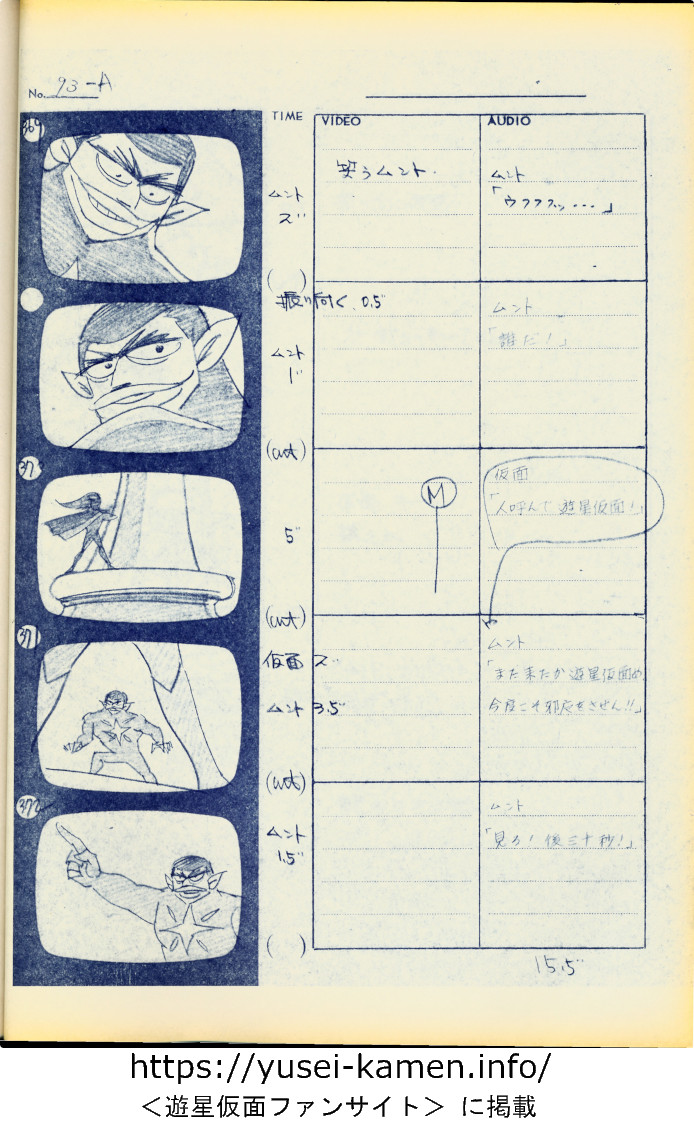 No. 93-A
TIME
VIDEO
AUDIO
369
ムント
笑うムント.
ムント
「ウフフフッ...」
( )
振り向く、0.5"
ムント
1"
ムント
「誰だ!」
(cut)
37
5"
M
仮面
「人呼んで遊星仮面!」
(cut)
371
仮面
ムント 3.5"
ムント
「また来たか遊星仮面め、
今度こそ邪魔をさせん!!」
(cut)
372
ムント
1.5"
ムント
「見ろ!後三十秒!」
( )
15.5"
https://yusei-kamen.info/
＜遊星仮面ファンサイト＞ に掲載